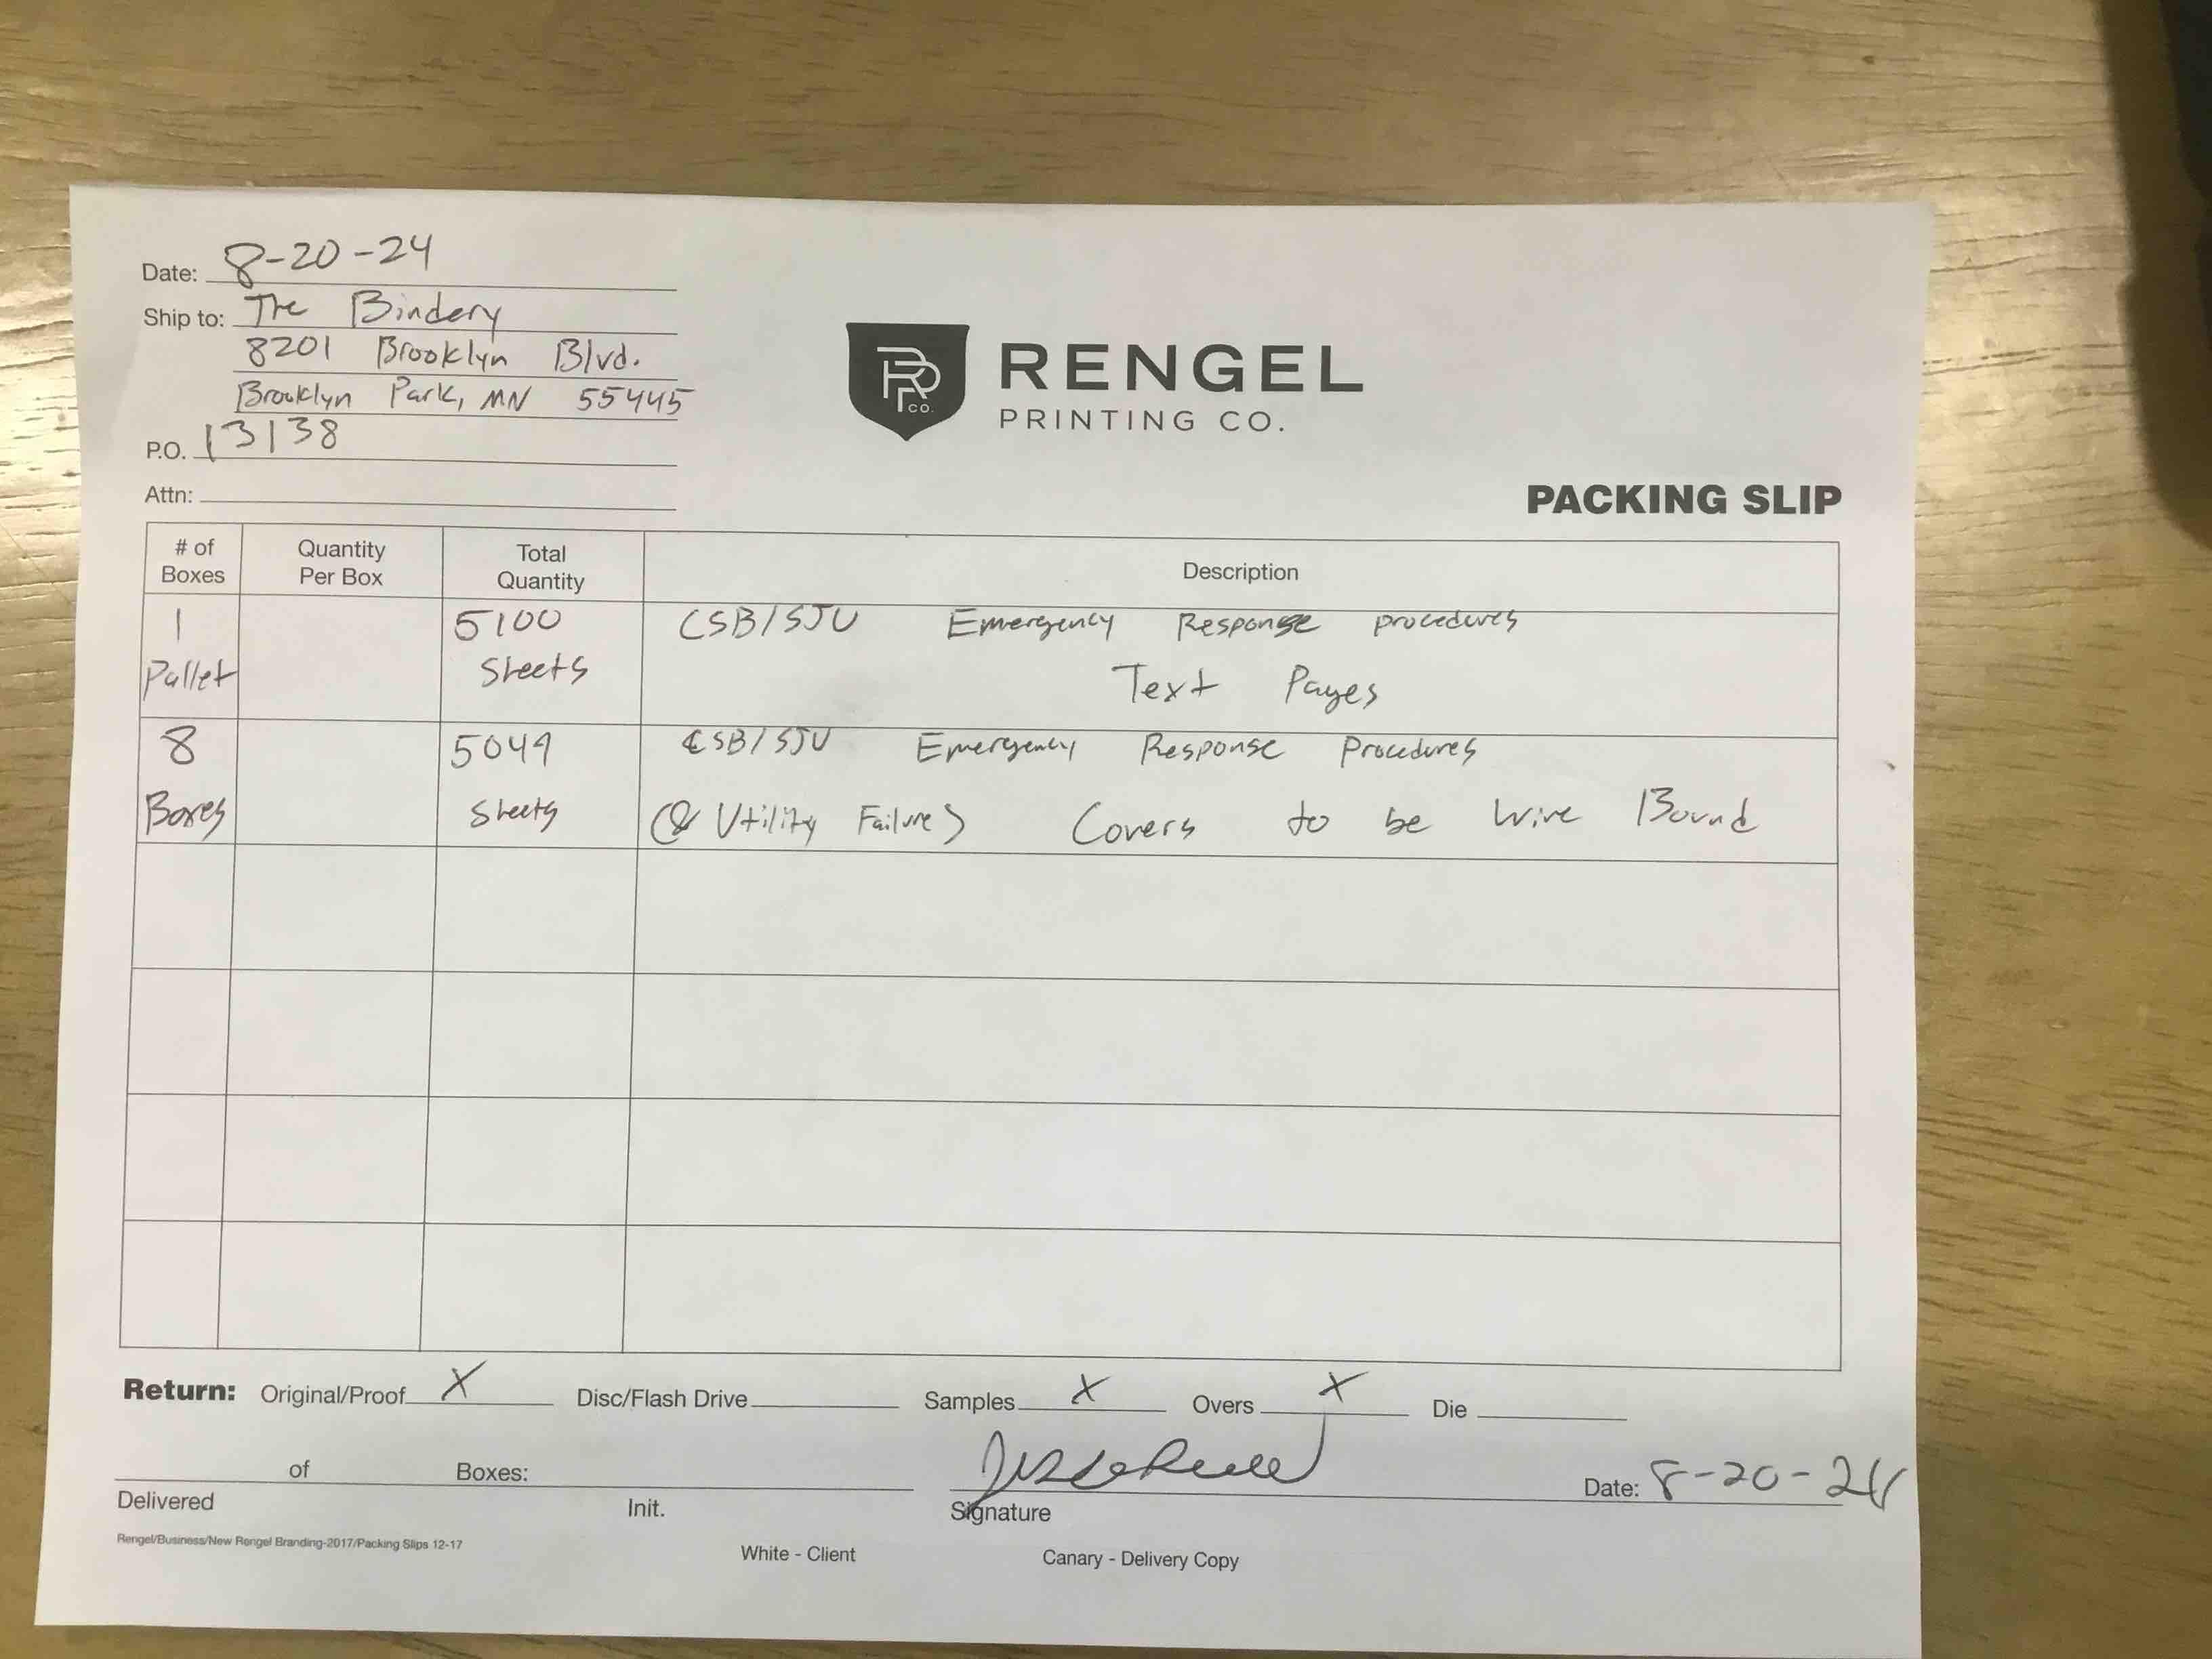 Date: 8-20-24
Ship to: The Bindery
8201 Brooklyn Blvd.
Brooklyn Park, MN 55445
P.O. 13138
Attn:
RP CO.
RENGEL
PRINTING CO.
PACKING SLIP
# of Boxes Quantity Per Box Total Quantity Description
1 5100 CSB/SJU Emergency Response procedures
Pallet Sheets Text Pages
8 5049 CSB/SJU Emergency Response Procedures
Boxes Sheets (& Utility Failure) Covers to be Wire Bound
Return: Original/Proof X Disc/Flash Drive Samples X Overs X Die
of Boxes: Date: 8-20-24
Delivered Init. Signature
Rengel/Business/New Rengel Branding-2017/Packing Slips 12-17
White - Client Canary - Delivery Copy